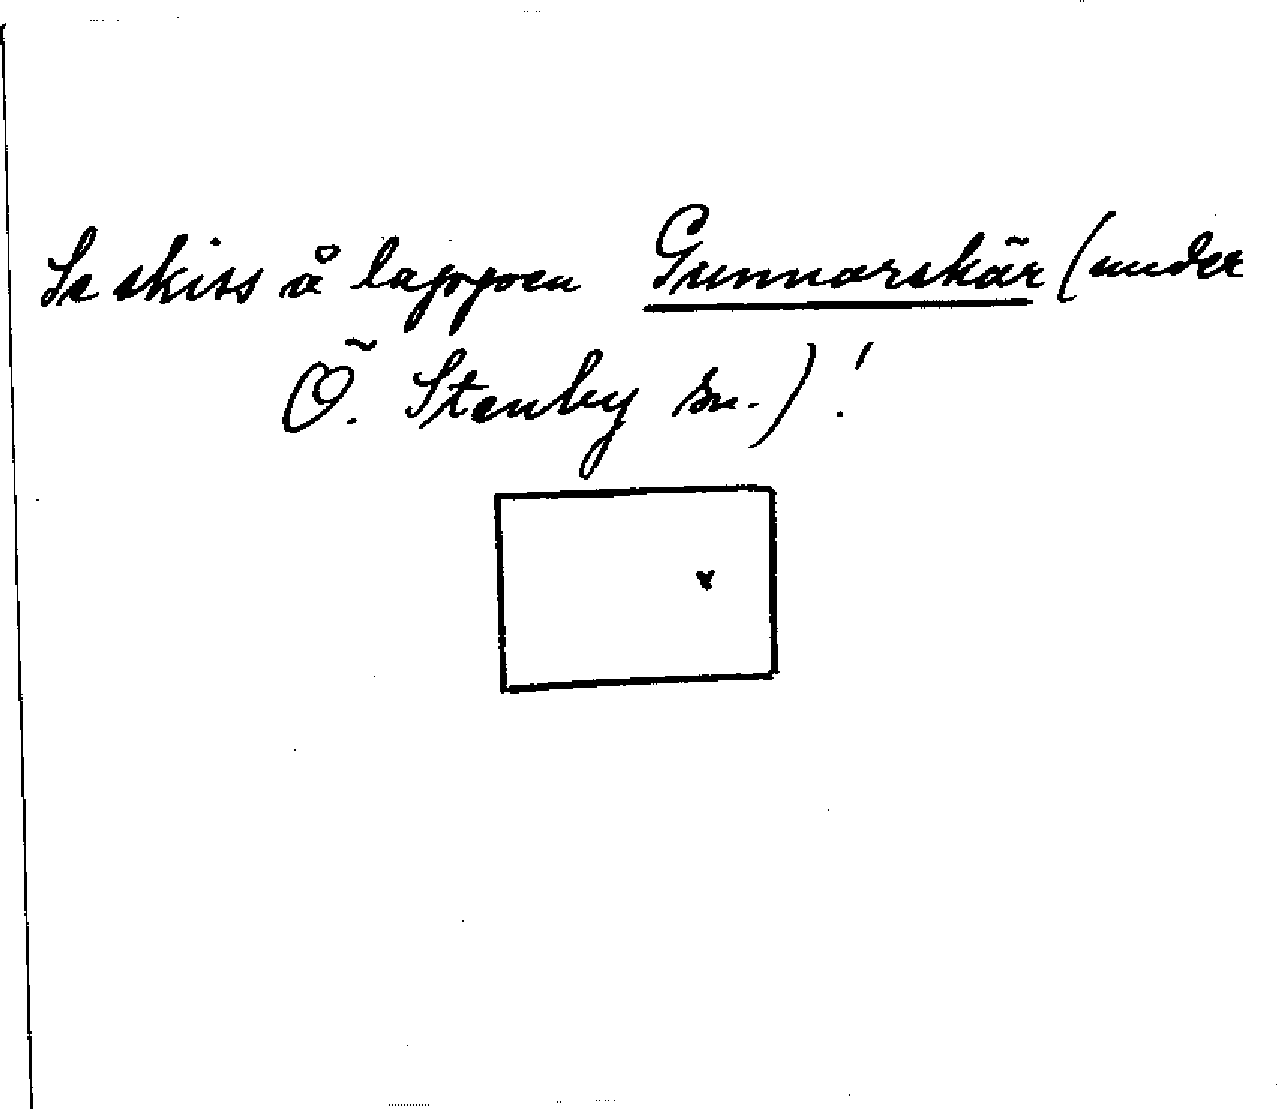 Se skiss å lappen Gunnarskär (under
Ö. Stenby sn.)!